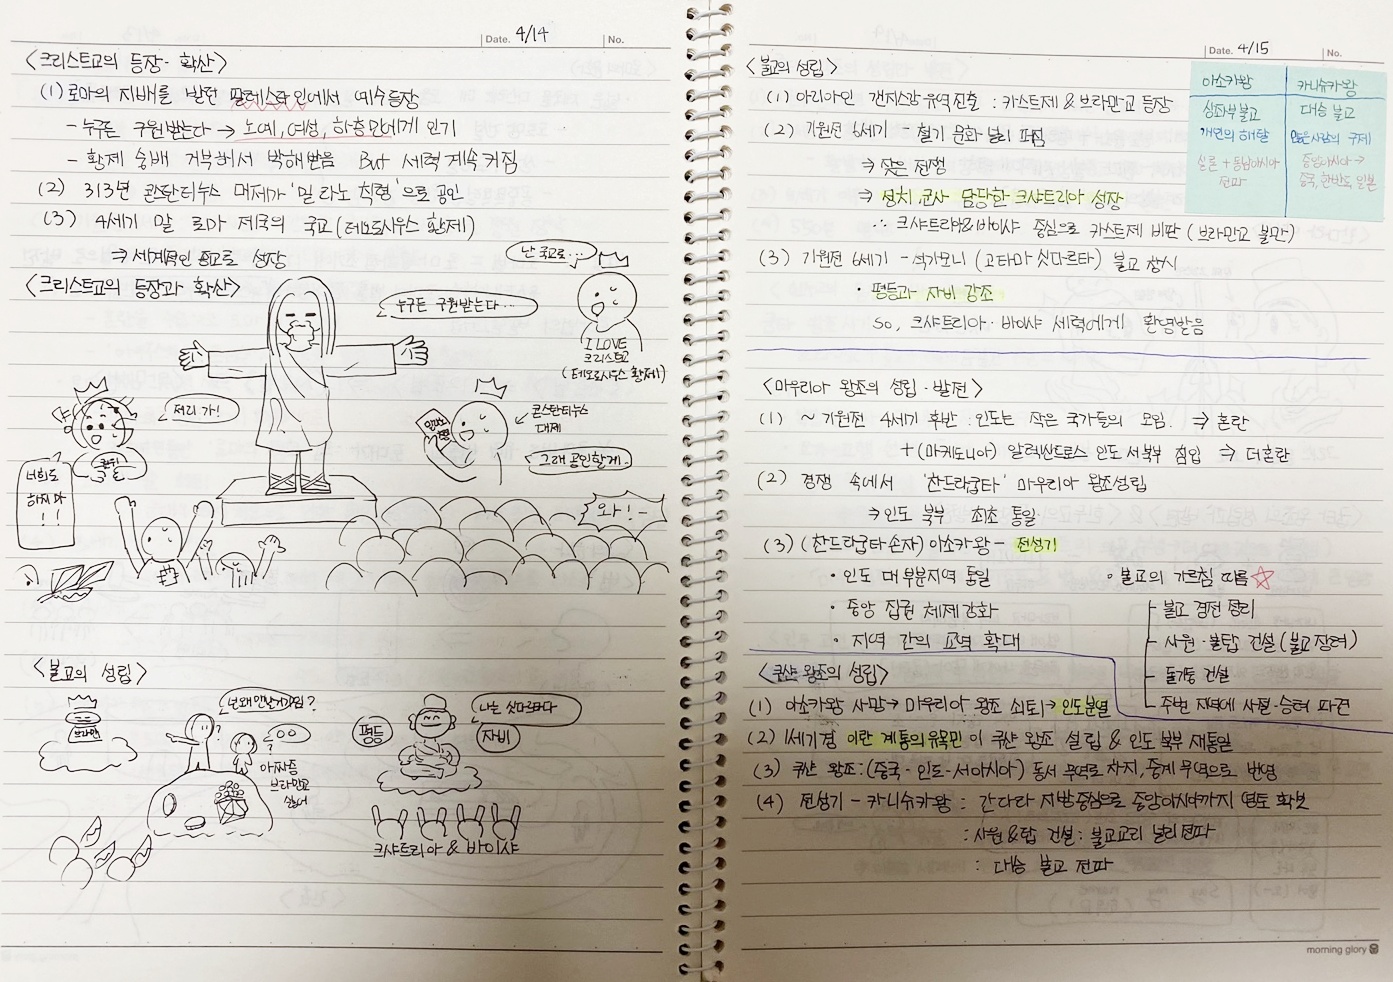 Date. 4/14 No.
<크리스트교의 등장·확산>
(1) 로마의 지배를 받던 팔레스타인에서 예수등장
- 누구든 구원받는다 → 노예, 여성, 하층민에게 인기
- 황제 숭배 거부해서 박해받음 But 세력 계속 커짐
(2) 313년 콘스탄티누스 대제가 '밀라노 칙령'으로 공인
(3) 4세기 말 로마 제국의 국교 (테오도시우스 황제)
⇒ 세계적인 종교로 성장
<크리스트교의 등장과 확산>
난 국교로..
누구든 구원받는다...
I LOVE
크리스트교
(테오도시우스 황제)
저리 가!
콘스탄티누스
대제
그래 공인할게~
너희도
하지 마
!!
와!-
<불교의 성립>
브라만
?
평등
나는 싯다르타다
자비
아 짜증
브라만교
싫어
크샤트리아 & 바이샤
Date. 4/15 No.
<불교의 성립>
(1) 아리아인 갠지스강 유역 진출 : 카스트제 & 브라만교 등장
(2) 기원전 6세기 - 철기 문화 널리 퍼짐
⇒ 잦은 전쟁
⇒ 정치, 군사 담당한 크샤트리아 성장
∴ 크샤트리아&바이샤 중심으로 카스트제 비판 (브라만교 불만)
(3) 기원전 6세기 - 석가모니 (고타마 싯다르타) 불교 창시
· 평등과 자비 강조
So, 크샤트리아·바이샤 세력에게 환영받음
아소카왕 카니슈카왕
상좌부 불교 대승 불교
개인의 해탈 많은 사람의 구제
실론 + 동남아시아 전파
중앙아시아 →
중국, 한반도, 일본
<마우리아 왕조의 성립·발전>
(1) ~ 기원전 4세기 후반 : 인도는 작은 국가들의 모임. ⇒ 혼란
+ (마케도니아) 알렉산드로스 인도 서북부 침입 ⇒ 더 혼란
(2) 경쟁 속에서 '찬드라굽타' 마우리아 왕조성립
⇒ 인도 북부 최초 통일
(3) (찬드라굽타 손자) 아소카 왕 - 전성기
· 인도 대부분지역 통일
· 중앙 집권 체제 강화
· 지역 간의 교역 확대
· 불교의 가르침 따름☆
- 불교 경전 정리
- 사원·불탑 건설 (불교 장려)
- 돌기둥 건설
- 주변 지역에 사절·승려 파견
<쿠샨 왕조의 성립>
(1) 아소카왕 사망 → 마우리아 왕조 쇠퇴 → 인도분열
(2) 1세기경 이란 계통의 유목민이 쿠샨 왕조 설립 & 인도 북부 재통일
(3) 쿠샨 왕조 : (중국 - 인도 - 서아시아) 동서 무역로 차지, 중계 무역으로 번영
(4) 전성기 - 카니슈카왕 : 간다라 지방중심으로 중앙아시아까지 영토 확보
: 사원&탑 건설 : 불교교리 널리 전파
: 대승 불교 전파
morning glory